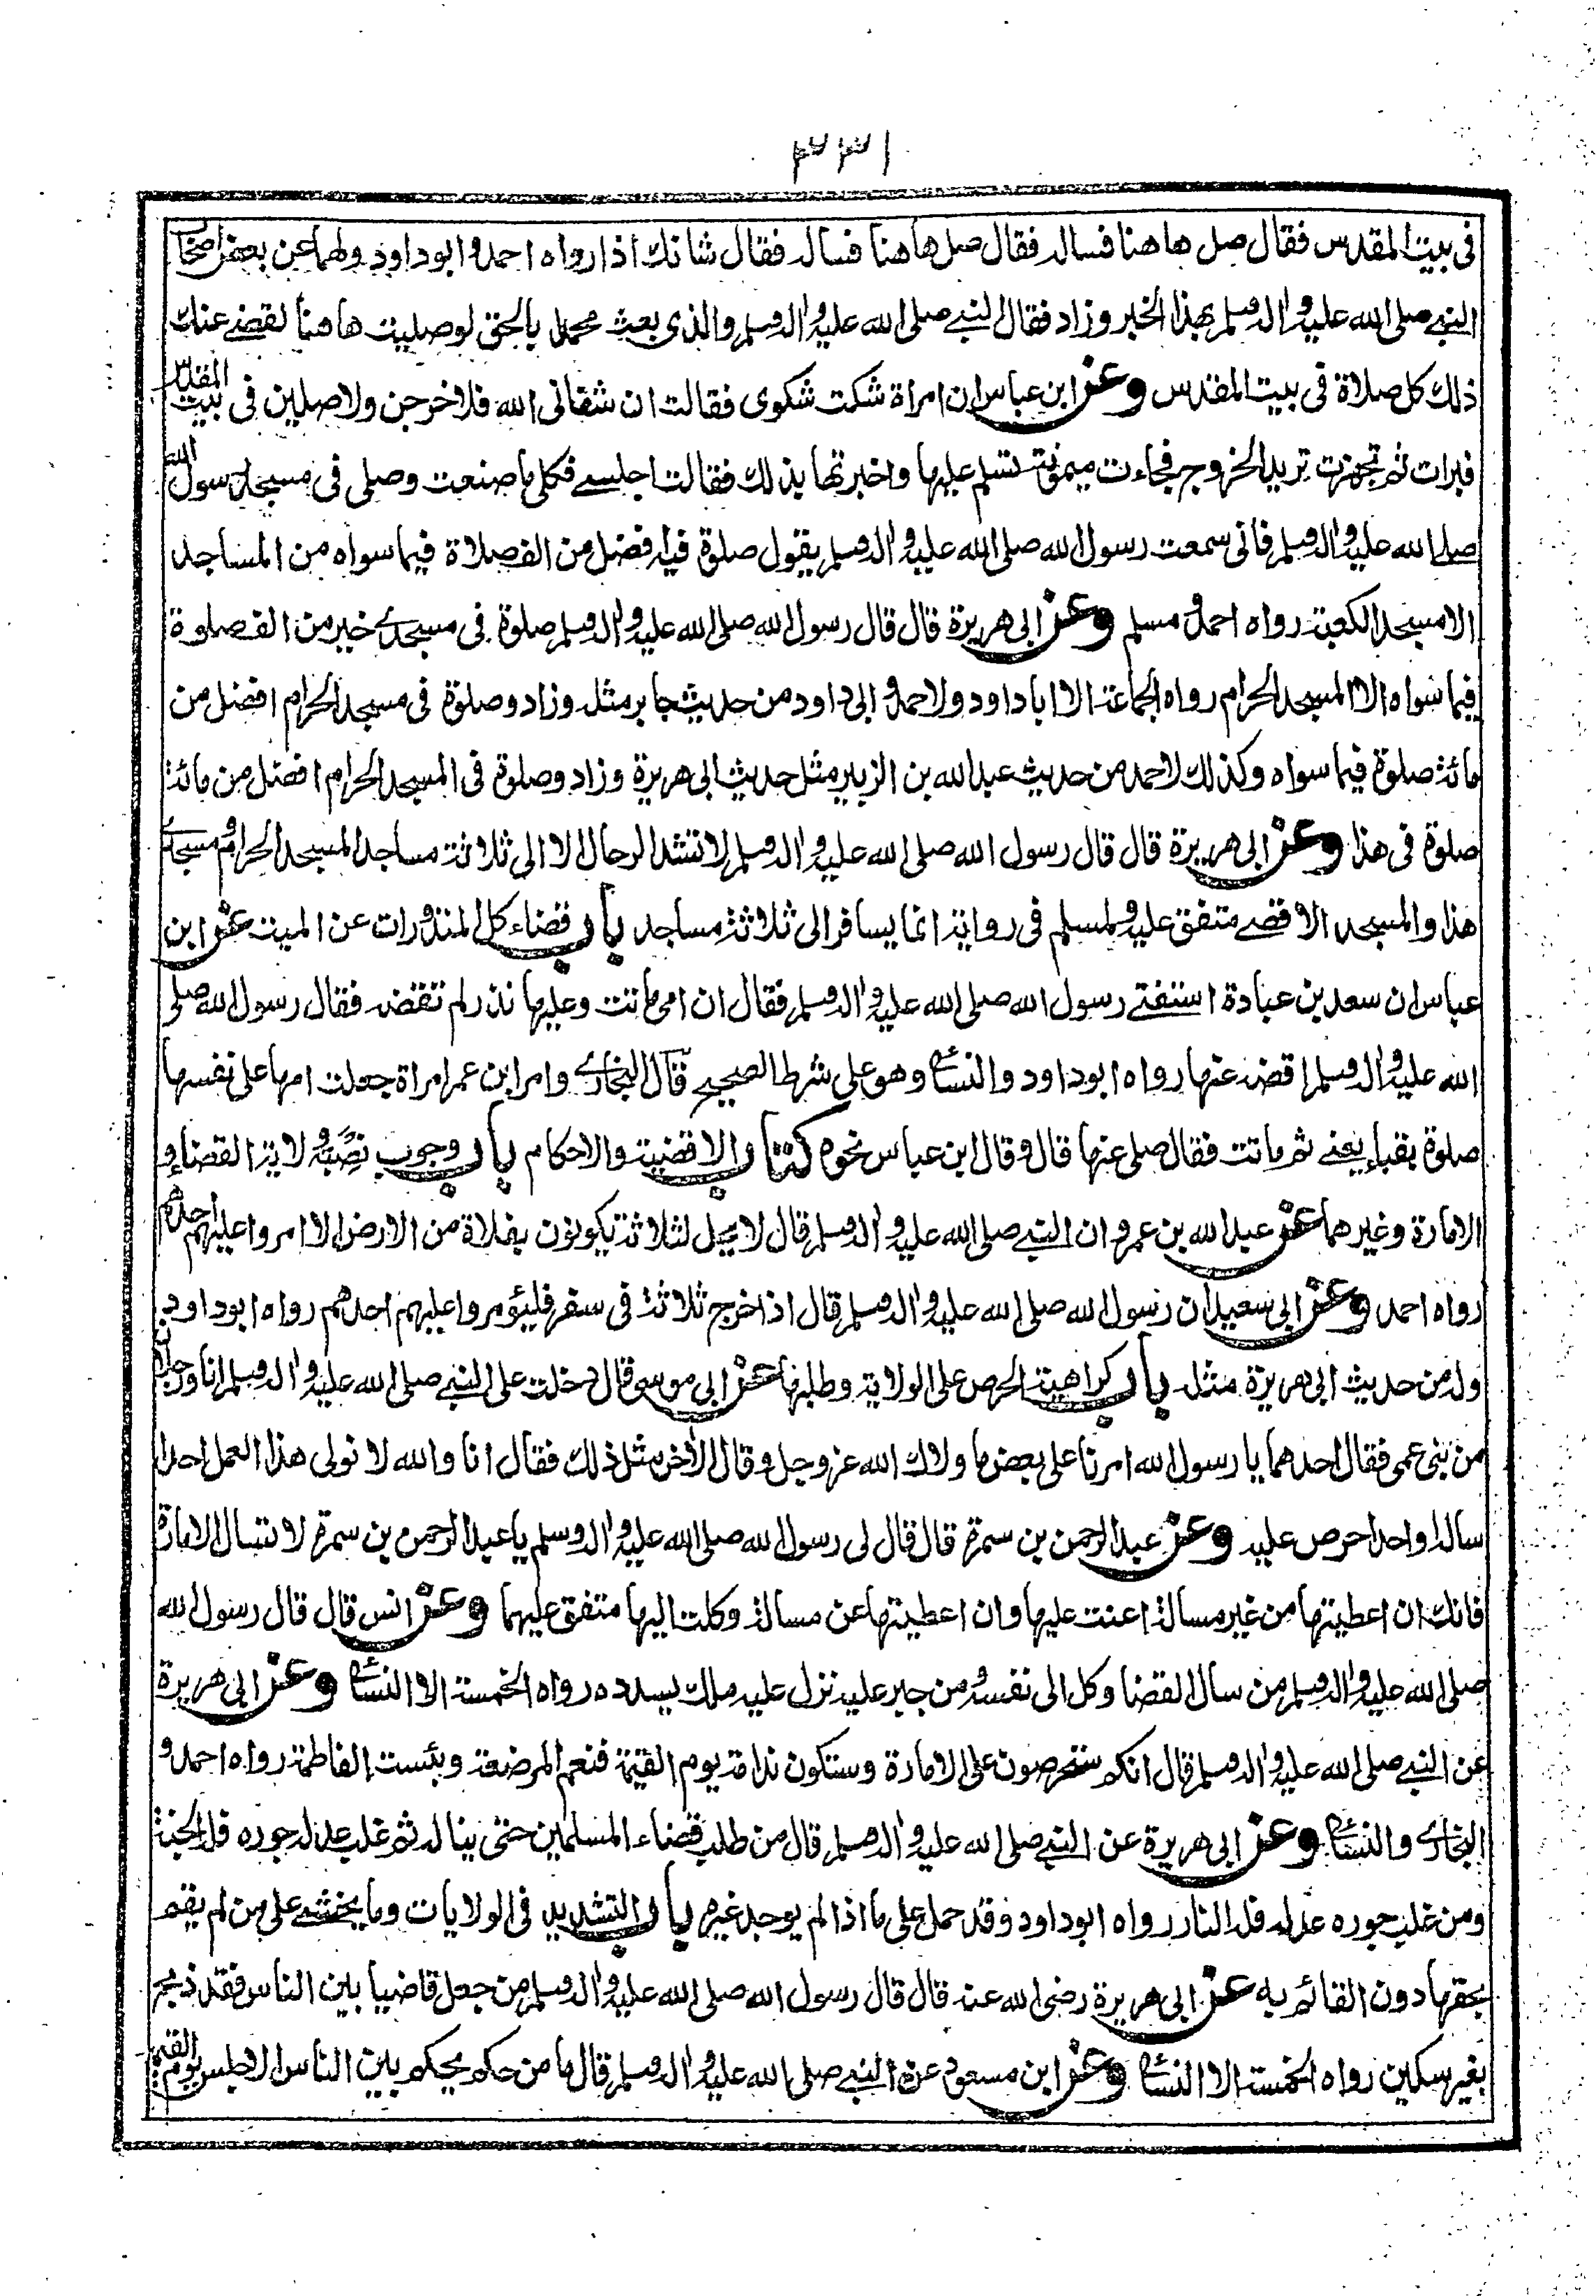 ٣٣١
فى بيت المقدس فقال صل ها هنا فساله فقال صل ها هنا فساله فقال شانك اذا رواه احمد وابو داود ولهما عن بعض اصحاب
النبى صلى الله عليه واله وسلم بهذا الخبر وزاد فقال النبى صلى الله عليه واله وسلم والذى بعث محمدا بالحق لو صليت ها هنا لقضى عنك
ذلك كل صلاة فى بيت المقدس وعن ابن عباس ان امراة شكت شكوى فقالت ان شفانى الله فلاخرجن ولاصلين فى بيت المقدس
فبرات ثم تجهزت تريد الخروج فجاءت ميمونة تسلم عليها واخبرتها بذلك فقالت اجلسى فكلى ما صنعت وصلى فى مسجد رسول الله
صلى الله عليه واله وسلم فانى سمعت رسول الله صلى الله عليه واله وسلم يقول صلوة فيه افضل من الف صلاة فيما سواه من المساجد
الا مسجد الكعبة رواه احمد ومسلم وعن ابى هريرة قال قال رسول الله صلى الله عليه واله وسلم صلوة فى مسجدى خير من الف صلوة
فيما سواه الا المسجد الحرام رواه الجماعة الا ابا داود ولاحمد وابى داود من حديث جابر مثله وزاد وصلوة فى مسجد الحرام افضل من
مائة صلوة فيما سواه وكذلك لاحمد من حديث عبد الله بن الزبير مثل حديث ابى هريرة وزاد وصلوة فى المسجد الحرام افضل من مائة
صلوة فى هذا وعن ابى هريرة قال قال رسول الله صلى الله عليه واله وسلم لا تشد الرحال الا الى ثلاثة مساجد المسجد الحرام ومسجدى
هذا والمسجد الاقصى متفق عليه ولمسلم فى رواية انما يسافر الى ثلاثة مساجد باب قضاء كل المنذورات عن الميت عن ابن
عباس ان سعد بن عبادة استفتى رسول الله صلى الله عليه واله وسلم فقال ان امى ماتت وعليها نذر لم تقضه فقال رسول الله صلى
الله عليه واله وسلم اقضه عنها رواه ابو داود والنسائى وهو على شرط الصحيح قال البخارى وامر ابن عمر امراة جعلت امها على نفسها
صلوة بقباء يعنى ثم ماتت فقال صلى عنها قال وقال ابن عباس نحوه كتاب الاقضية والاحكام باب وجوب نصبة ولاية القضاء و
الامارة وغيرهما عن عبد الله بن عمرو ان النبى صلى الله عليه واله وسلم قال لا يحل لثلاثة يكونون بفلاة من الارض الا امروا عليهم احدهم
رواه احمد وعن ابى سعيد ان رسول الله صلى الله عليه واله وسلم قال اذا خرج ثلاثة فى سفر فليؤمروا عليهم احدهم رواه ابو داود
وله من حديث ابى هريرة مثله باب كراهية الحرص على الولاية وطلبها عن ابى موسى قال دخلت على النبى صلى الله عليه واله وسلم انا ورجلان
من بنى عمى فقال احدهما يا رسول الله امرنا على بعض ما ولاك الله عز وجل وقال الاخر مثل ذلك فقال انا والله لا نولى هذا العمل احدا
ساله او احدا حرص عليه وعن عبد الرحمن بن سمرة قال قال لى رسول الله صلى الله عليه واله وسلم يا عبد الرحمن بن سمرة لا تسال الامارة
فانك ان اعطيتها من غير مسالة اعنت عليها وان اعطيتها عن مسالة وكلت اليها متفق عليهما وعن انس قال قال رسول الله
صلى الله عليه واله وسلم من سال القضا وكل الى نفسه ومن جبر عليه نزل عليه ملك يسدده رواه الخمسة الا النسائى وعن ابى هريرة
عن النبى صلى الله عليه واله وسلم قال انكم ستحرصون على الامارة وستكون ندامة يوم القيمة فنعم المرضعة وبئست الفاطمة رواه احمد و
البخارى والنسائى وعن ابى هريرة عن النبى صلى الله عليه واله وسلم قال من طلب قضاء المسلمين حتى يناله ثم غلب عدله جوره فله الجنة
ومن غلب جوره عدله فله النار رواه ابو داود وقد حمل على ما اذا لم يوجد غيره باب التشديد فى الولايات وما يخشى على من لم يقم
بحقها دون القائم به عن ابى هريرة رضى الله عنه قال قال رسول الله صلى الله عليه واله وسلم من جعل قاضيا بين الناس فقد ذبح
بغير سكين رواه الخمسة الا النسائى وعن ابن مسعود عن النبى صلى الله عليه واله وسلم قال ما من حكم يحكم بين الناس الا حبس يوم القيمة